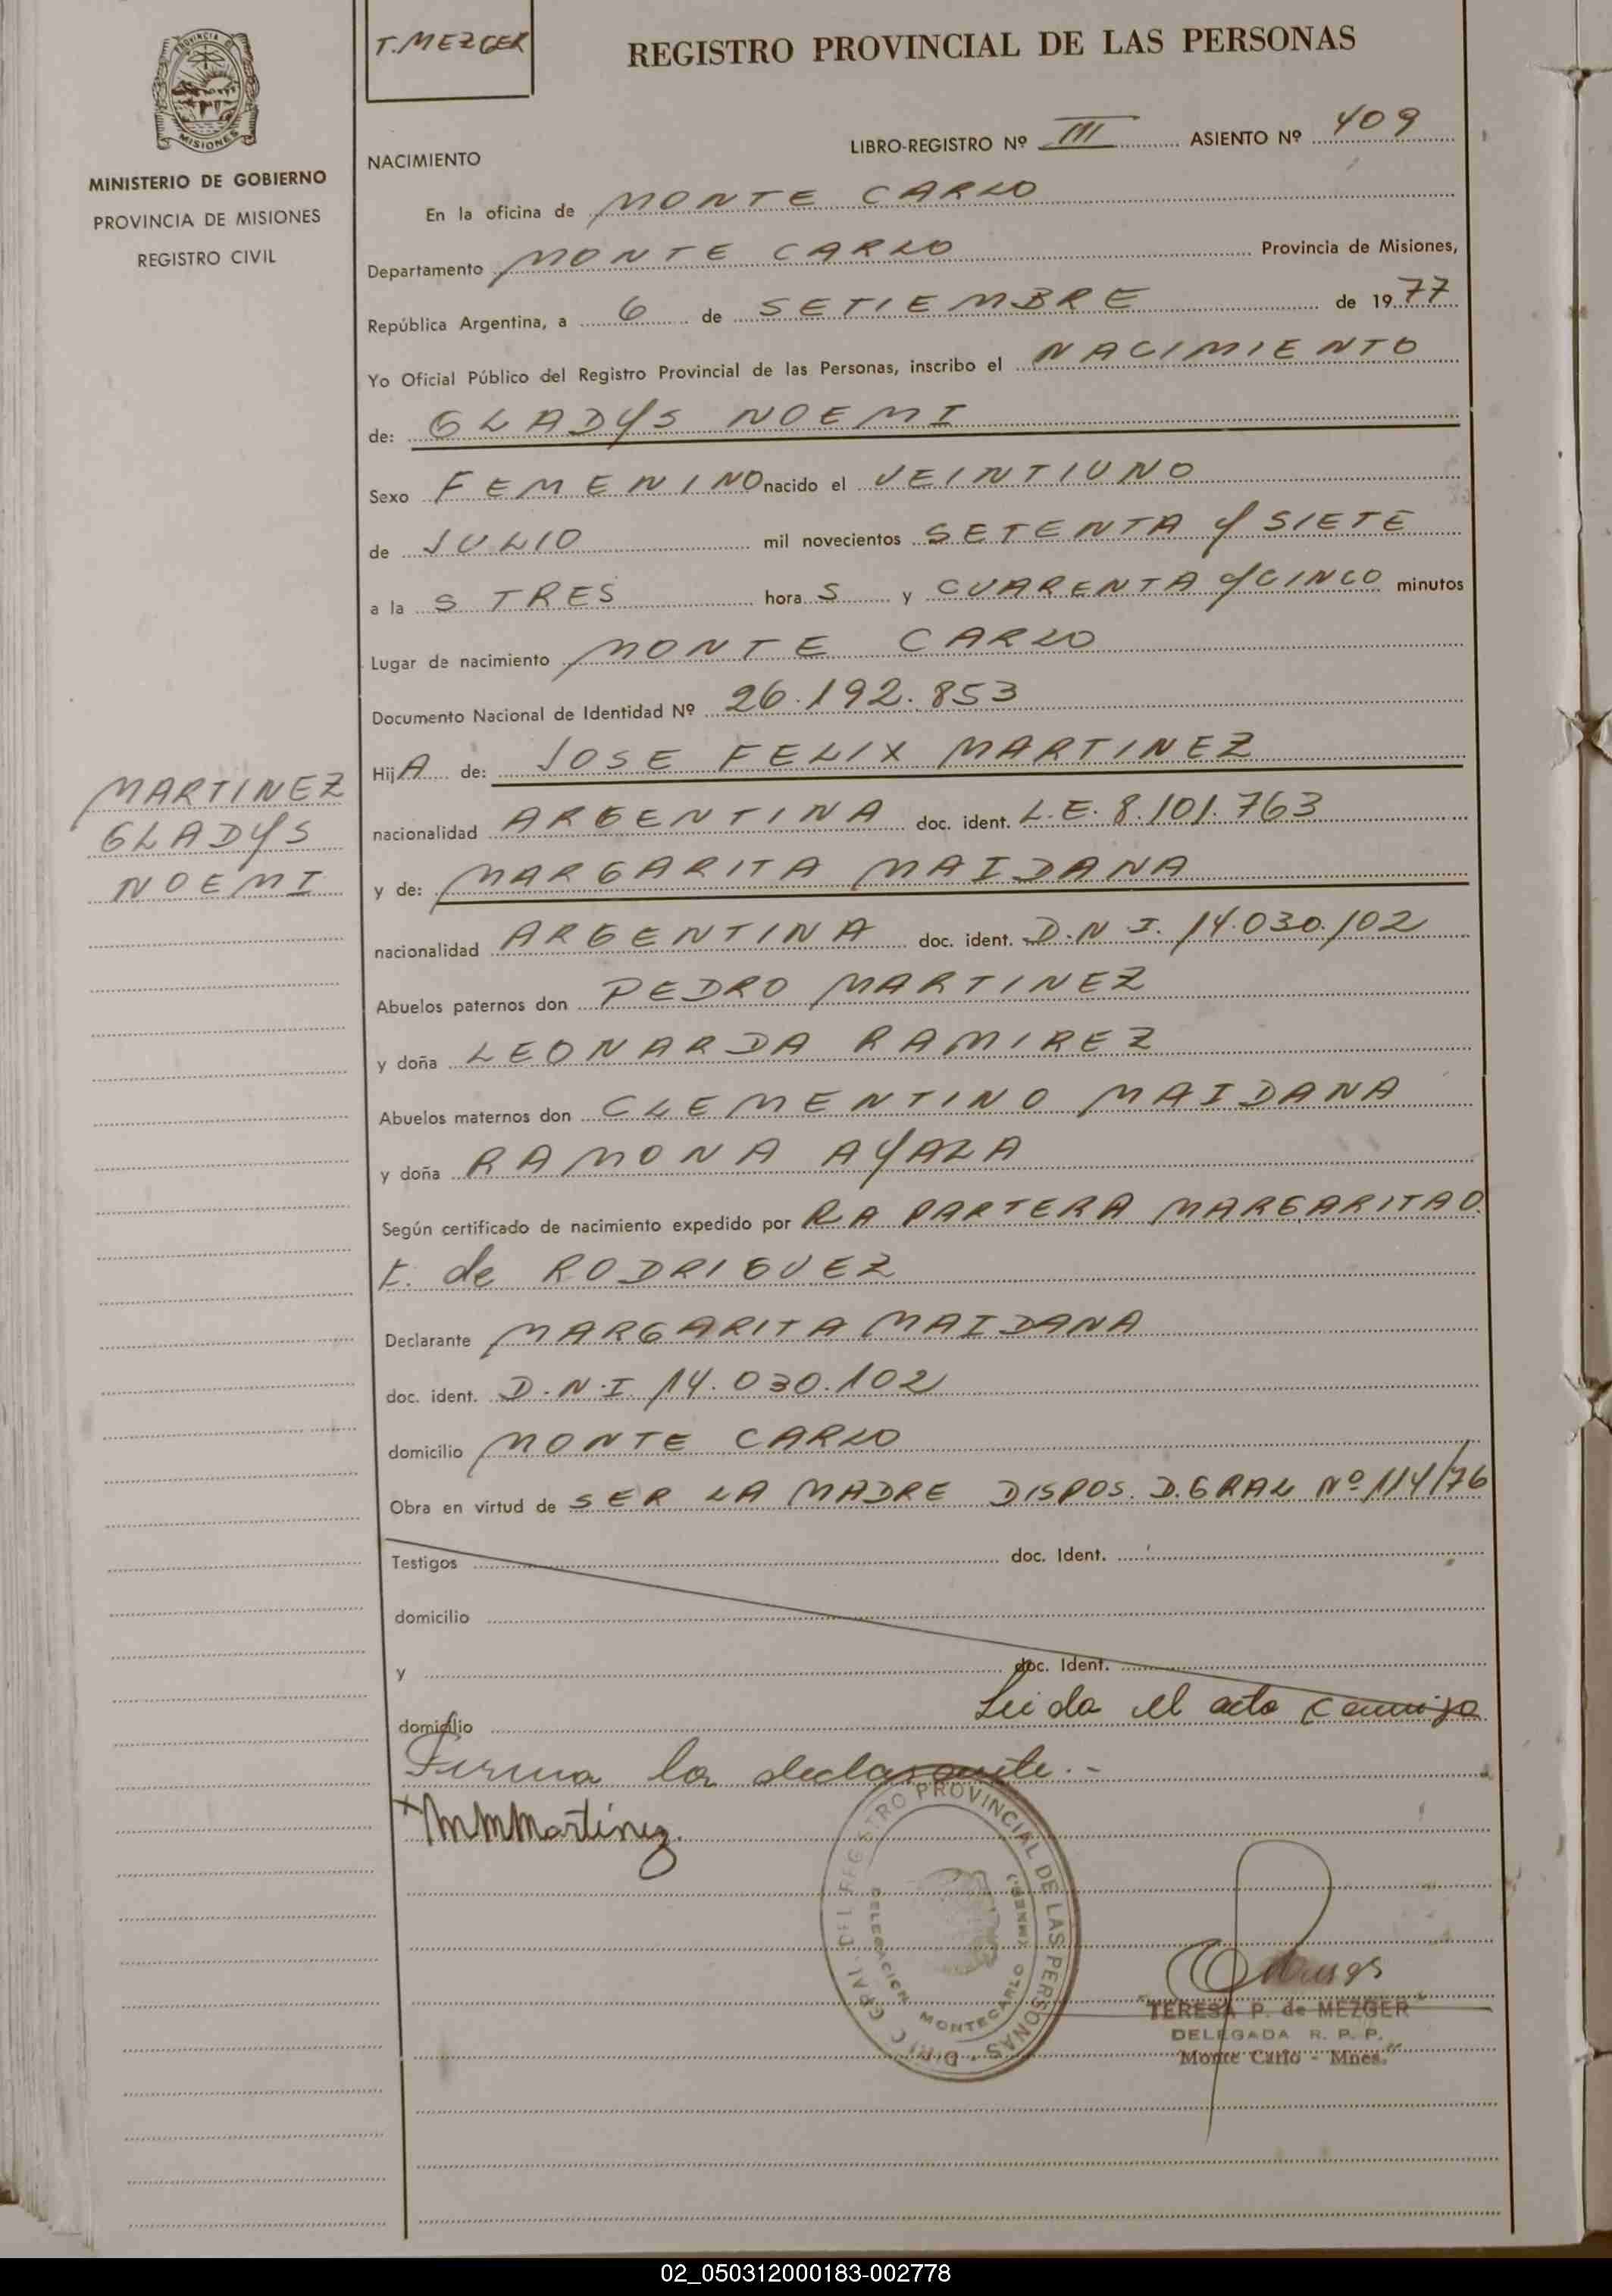 T. MEZGER
REGISTRO PROVINCIAL DE LAS PERSONAS
PROVINCIA DE
MISIONES
MINISTERIO DE GOBIERNO
PROVINCIA DE MISIONES
REGISTRO CIVIL
LIBRO-REGISTRO Nº III ASIENTO Nº 409
NACIMIENTO
En la oficina de MONTE CARLO
Departamento MONTE CARLO Provincia de Misiones,
República Argentina, a 6 de SETIEMBRE de 1977
Yo Oficial Público del Registro Provincial de las Personas, inscribo el NACIMIENTO
de: GLADYS NOEMI
Sexo FEMENINO nacido el VEINTIUNO
de JULIO mil novecientos SETENTA Y SIETE
a la S TRES hora S y CUARENTA Y CINCO minutos
Lugar de nacimiento MONTE CARLO
Documento Nacional de Identidad Nº 26.192.853
HijA de: JOSE FELIX MARTINEZ
MARTINEZ
GLADYS
NOEMI
nacionalidad ARGENTINA doc. ident. L.E. 8.101.763
y de: MARGARITA MAIDANA
nacionalidad ARGENTINA doc. ident. D.N.I. 14.030.102
Abuelos paternos don PEDRO MARTINEZ
y doña LEONARDA RAMIREZ
Abuelos maternos don CLEMENTINO MAIDANA
y doña RAMONA AYALA
Según certificado de nacimiento expedido por LA PARTERA MARGARITA O.
t. de RODRIGUEZ
Declarante MARGARITA MAIDANA
doc. ident. D.N.I. 14.030.102
domicilio MONTE CARLO
Obra en virtud de SER LA MADRE DISPOS. D. GRAL Nº 114/76
Testigos doc. Ident.
domicilio
y doc. Ident.
domicilio Leida el acta conmigo
Firma la declarante.-
x MMMartinez.
DIRIC. GRAL. DEL REGISTRO PROVINCIAL DE LAS PERSONAS
DELEGACION MONTECARLO
"TERESA P. de MEZGER"
DELEGADA R. P. P.
Monte Carlo - Mnes."
02_050312000183-002778